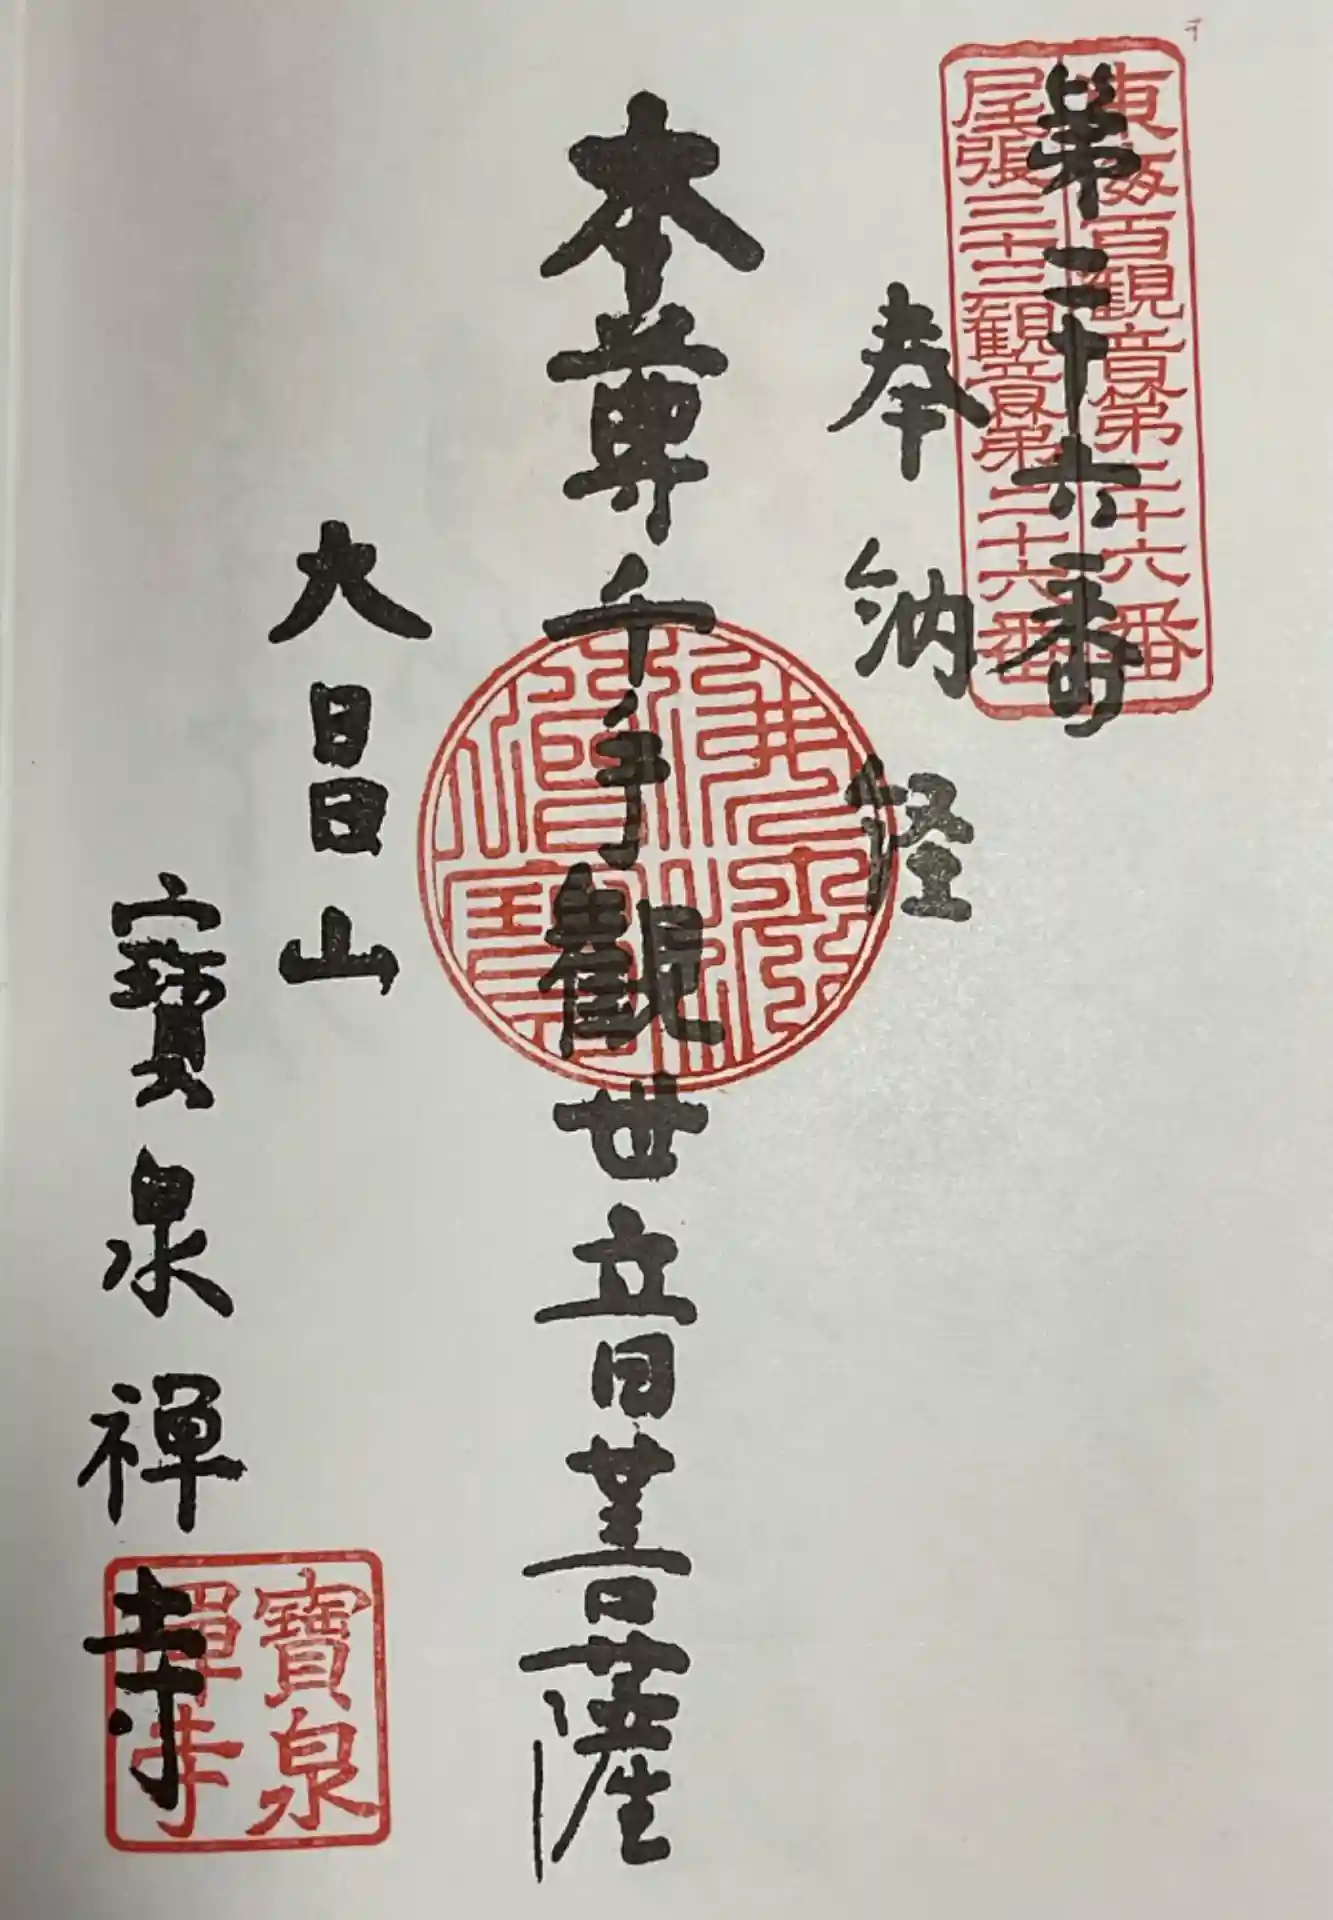 東海百観音第二十六番
尾張三十三観音第二十六番
第二十六番
奉納経
本尊千手観世音菩薩
佛法僧寶
大昌山
寶泉禅寺
寶泉
禪寺